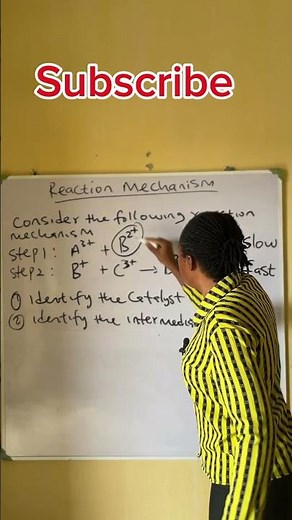 Subscribe
Reaction Mechanism
Consider the following
mechanism
Step 1: A³⁺ + B²⁺ slow
Step 2: B⁺ + C³⁺ → fast
① Identify the Catalyst
② Identify the